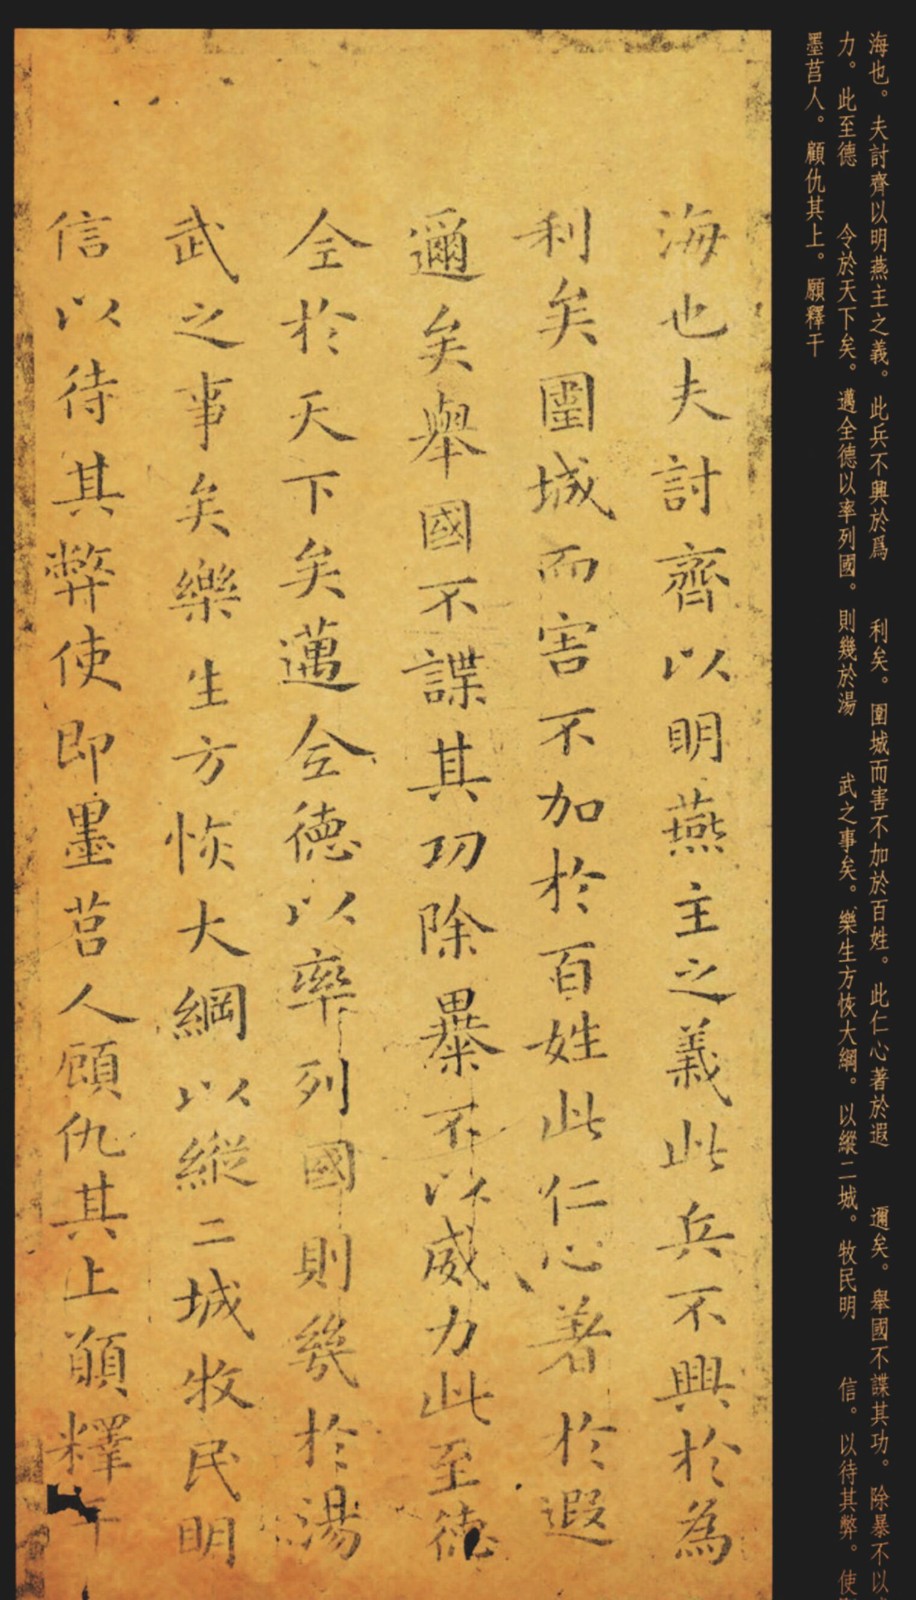 海也。夫討齊以明燕主之義。此兵不興於爲 利矣。圍城而害不加於百姓。此仁心著於遐 邇矣。舉國不諜其功。除暴不以
力。此至德 令於天下矣。邁全德以率列國。則幾於湯 武之事矣。樂生方恢大綱。以縱二城。牧民明 信。以待其弊。使
墨莒人。顧仇其上。願釋干
海也夫討齊以明燕主之義此兵不興於為
利矣圍城而害不加於百姓此仁心著於遐
邇矣舉國不諜其功除暴不以威力此至德
全於天下矣邁全德以率列國則幾於湯
武之事矣樂生方恢大綱以縱二城牧民明
信以待其弊使即墨莒人顧仇其上願釋干